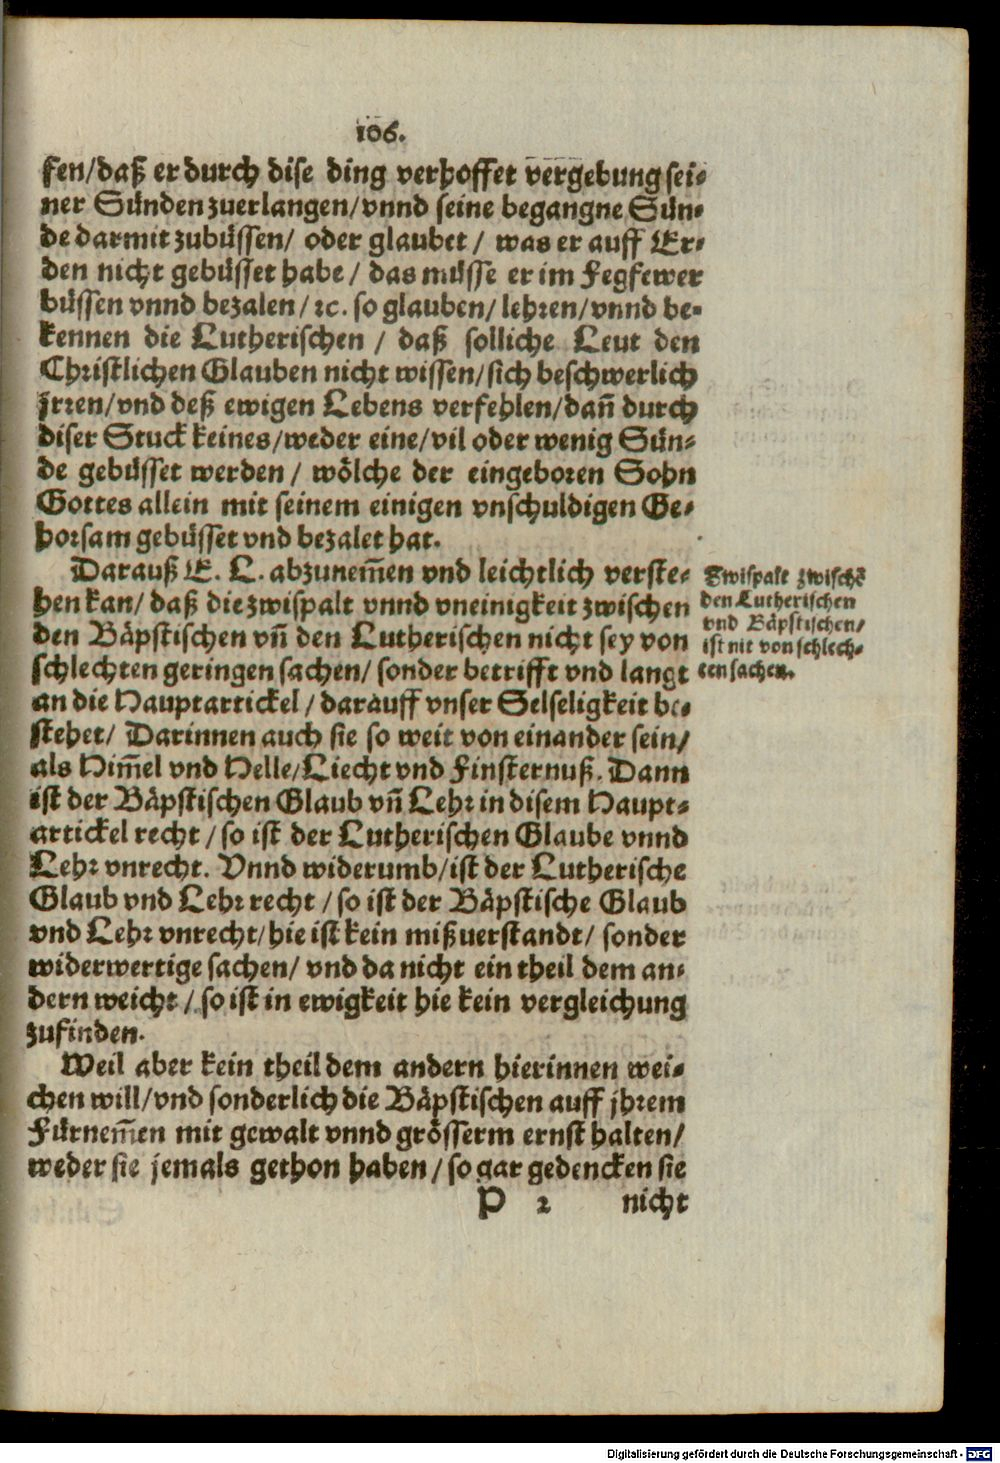 106.
fen/daß er durch dise ding verhoffet vergebung sei-
ner Sünden zuerlangen/vnnd seine begangne Sün-
de darmit zubüssen/ oder glaubet / was er auff Er-
den nicht gebüsset habe / das müsse er im Fegfewer
büssen vnnd bezalen / ꝛc. so glauben/ lehren/vnnd be-
kennen die Lutherischen / daß solliche Leut den
Christlichen Glauben nicht wissen/sich beschwerlich
jrren/vnd deß ewigen Lebens verfehlen/dañ durch
diser Stuck keines/weder eine/vil oder wenig Sün-
de gebüsset werden / wölche der eingeboren Sohn
Gottes allein mit seinem einigen vnschuldigen Ge-
horsam gebüsset vnd bezalet hat.
Darauß E. L. abzunem̃en vnd leichtlich verste-
hen kan/ daß die zwispalt vnnd vneinigkeit zwischen
den Bäpstischen vñ den Lutherischen nicht sey von
schlechten geringen sachen/ sonder betrifft vnd langt
an die Hauptartickel / darauff vnser Selseligkeit be-
stehet/ Darinnen auch sie so weit von einander sein/
als Him̃el vnd Helle/Liecht vnd Finsternuß. Dann
ist der Bäpstischen Glaub vñ Lehr in disem Haupt-
artickel recht / so ist der Lutherischen Glaube vnnd
Lehr vnrecht. Vnnd widerumb/ist der Lutherische
Glaub vnd Lehr recht / so ist der Bäpstische Glaub
vnd Lehr vnrecht/hie ist kein mißuerstandt/ sonder
widerwertige sachen/ vnd da nicht ein theil dem an-
dern weicht / so ist in ewigkeit hie kein vergleichung
zufinden.
Weil aber kein theil dem andern hierinnen wei-
chen will/vnd sonderlich die Bäpstischen auff jhrem
Fürnem̃en mit gewalt vnnd grösserm ernst halten/
weder sie jemals gethon haben / so gar gedencken sie
P 2 nicht
Zwispalt zwischẽ
den Lutherischen
vnd Bäpstischen/
ist nit von schlech-
ten sachen.
Digitalisierung gefördert durch die Deutsche Forschungsgemeinschaft - DFG